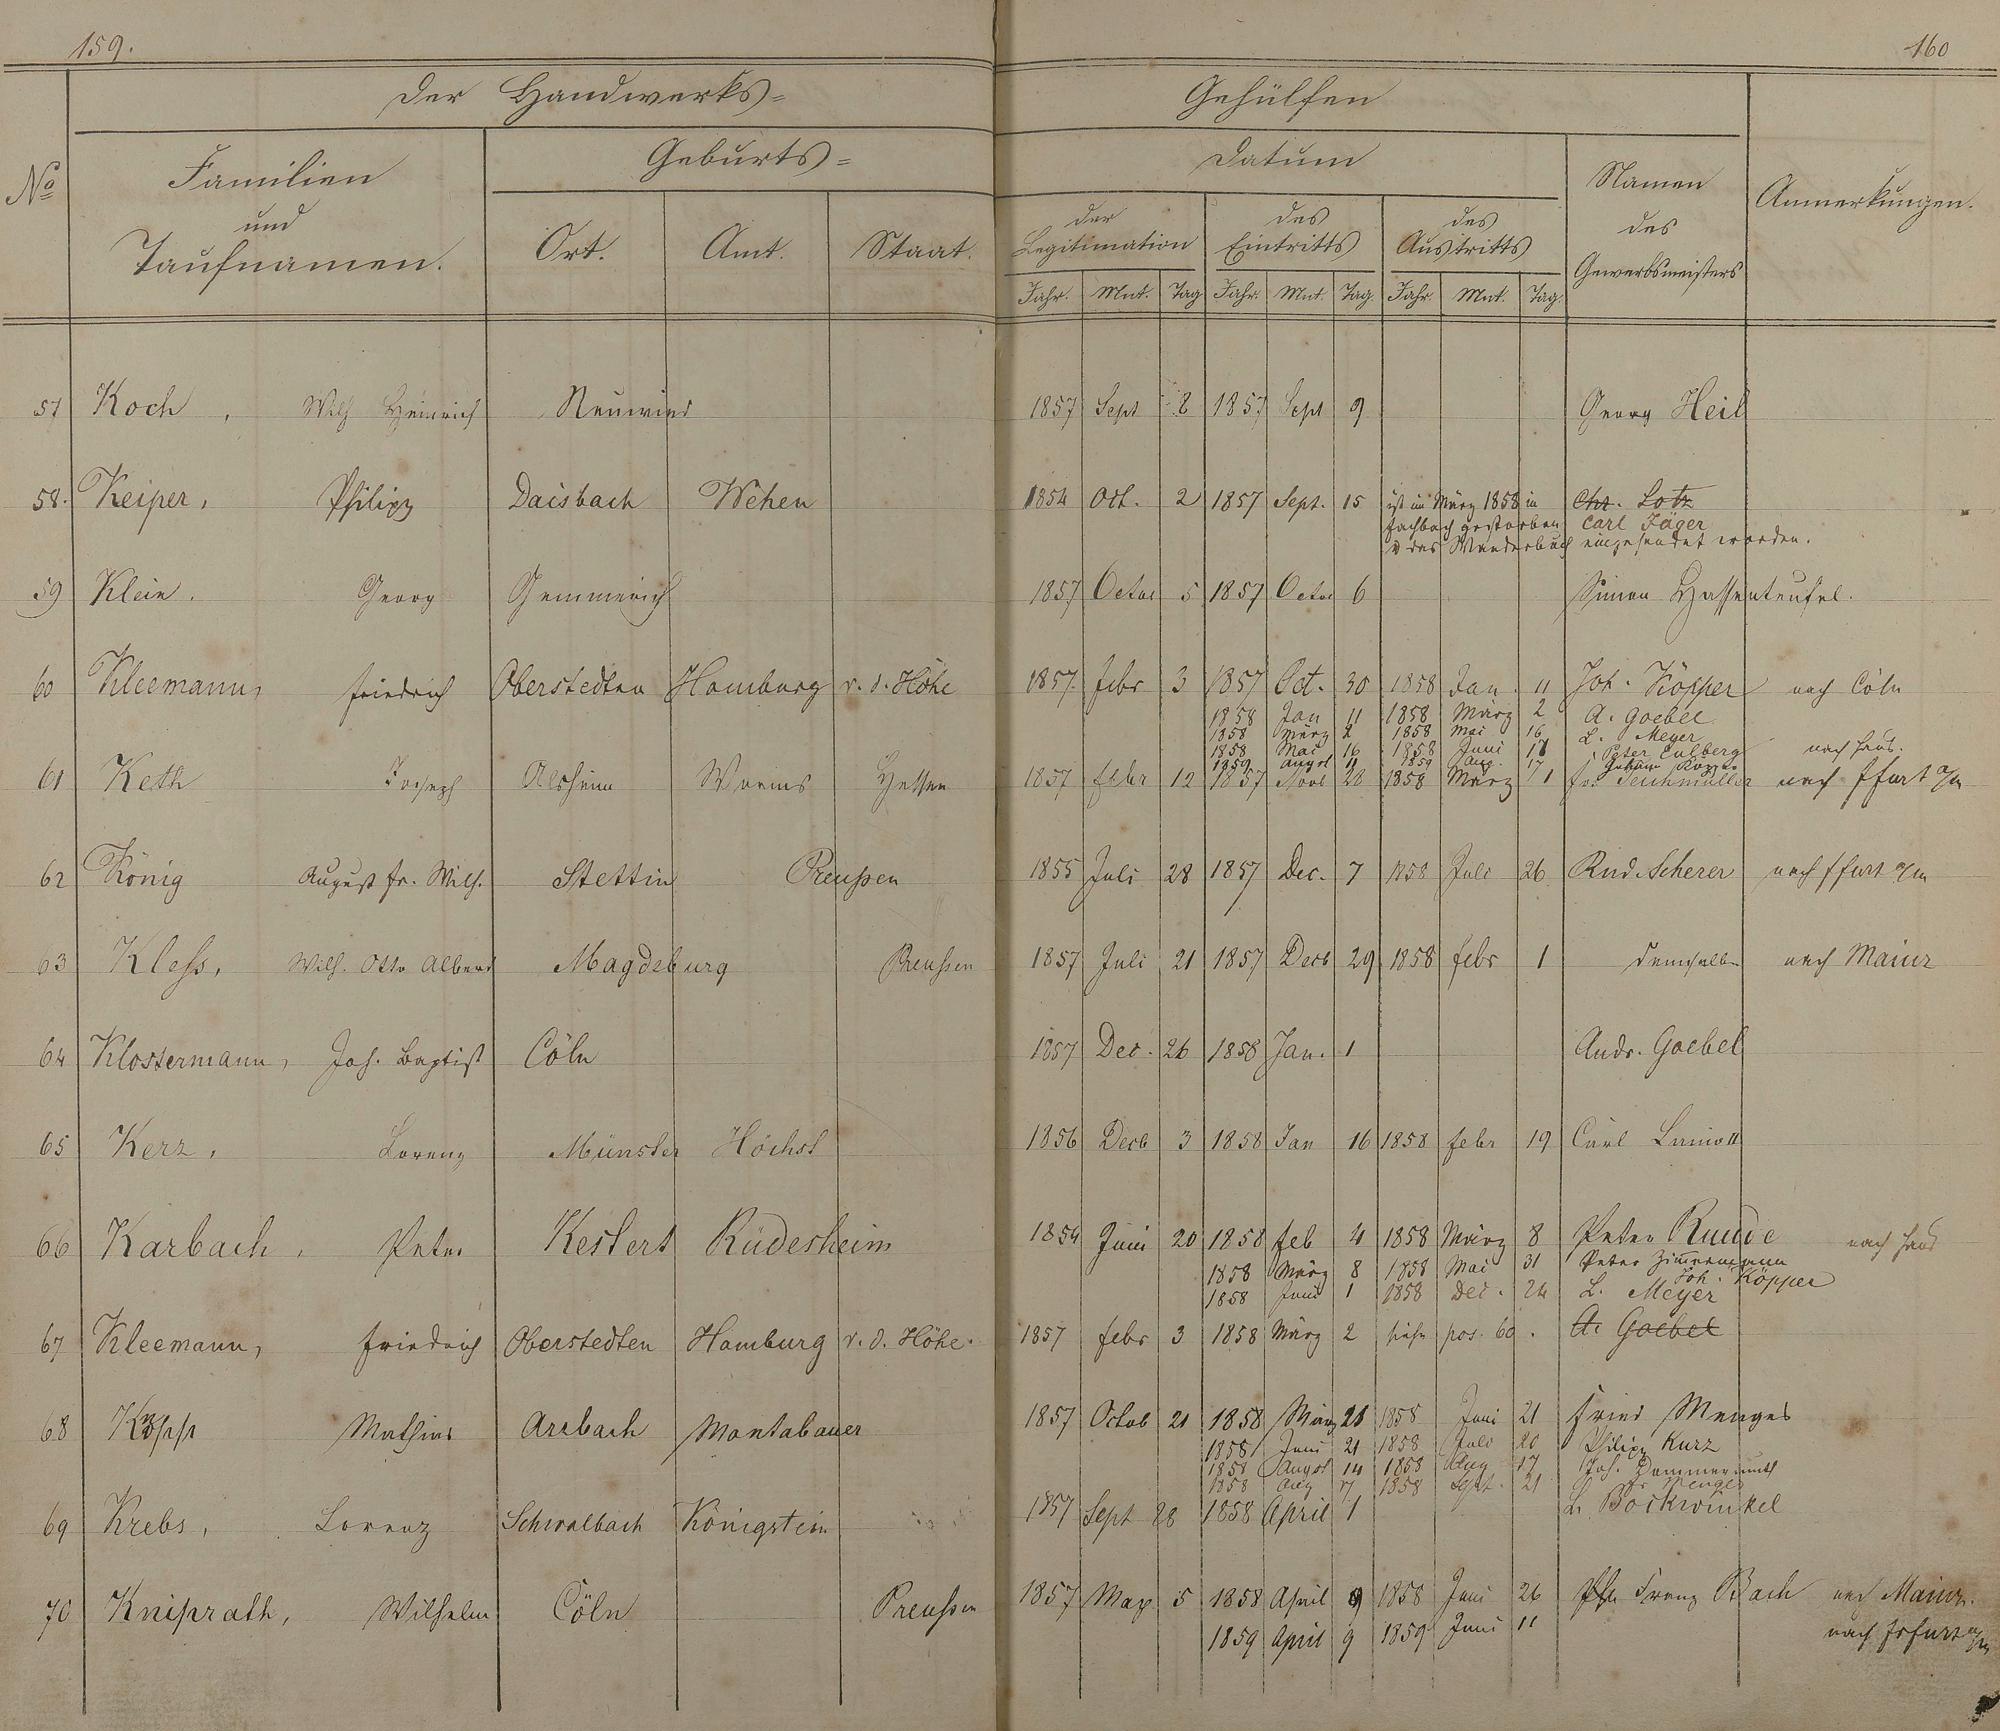 159.
160
Der Handwerks=
Gehülfen
No
Familien
und
Taufnamen.
Geburts=
Ort. Amt. Staat.
Datum
der
Legitimation
des
Eintritts
des
Austritts
Jahr. Mnt. Tag Jahr. Mnt. Tag. Jahr. Mnt. Tag.
Namen
des
Gewerbsmeisters
Anmerkungen.
57 Koch, Wilh Heinrich Neuwied 1857 Sept 8 1857 Sept 9 Georg Heil
58. Keiper, Philipp Daisbach Wehen 1854 Oct. 2 1857 Sept. 15 ist im März 1858 in Chr. Lotz
Fachbach gestorben Carl Jäger
u das Wanderbuch eingesendet worden.
59 Klein. Georg Gemmerich 1857 Octor 5 1857 Octor 6 Simon Hassenteufel.
60 Kleemann, Friedrich Oberstedten Homburg v. d. Höhe 1857. Febr 3 1857 Oct. 30 1858 Jan. 11 Joh. Köpper nach Cöln
1858 Jan 11 1858 März 2 A. Goebel
1858 März 2 1858 Mai 16 L. Meyer
1858 Mai 16 1858 Juni 17 Peter Culberg nach Haus.
1859 Augst 1859 Aug.
61 Keth Joseph Alsheim Worms Hessen 1857 Febr 12 1857 Novb 28 1858 März 1 Jos Teichmüller nach Ffurt a/m
62 König August Fr. Wilh. Stettin Preußen 1855 Juli 28 1857 Dec. 7 1858 Juli 26 Rud. Scherer nach Ffurt a/m
63 Kless, Wilh. Otto Albert Magdeburg Preußen 1857 Juli 21 1857 Decb 29 1858 Febr 1 demselben nach Mainz
64 Klostermann, Joh. Baptist Cöln 1857 Dec. 26 1858 Jan. 1 Andr. Goebel
65 Kerz, Lorenz Münster Höchst 1856 Decb 3 1858 Jan 16 1858 Febr 19 Carl Lanio II
66 Karbach, Peter Kestert Rüdesheim 1854 Juni 20 1858 Feb 4 1858 März 8 Peter Runde nach Haus
1858 März 8 1858 Mai 31 Peter Zimmermann
Joh. Köpper
1858 Juni 1 1858 Dec. 24 L. Meyer
67 Kleemann, Friedrich Oberstedten Homburg v. d. Höhe. 1857 Febr 3 1858 März 2 siehe pos. 60. A. Goebel
68 Kopp Mathias Arzbach Montabauer 1857 Octob 21 1858 März 28 1858 Juni 21 Fried Menges
1858 Juni 21 1858 Juli 20 Philipp Kurz
1858 Augst 14 1858 Aug 17 Joh. Dommermuth
1858 Aug 17 1858 Sept. 21 Fr Menges
69 Krebs, Lorenz Schwalbach Königstein 1857 Sept 28 1858 April 1 L. Bockwinkel
70 Kniprath, Wilhelm Cöln Preußen 1857 May 5 1858 April 9 1858 Juni 26 Franz Bach nach Mainz.
1859 April 9 1859 Juni 11 nach Frfurt a/m